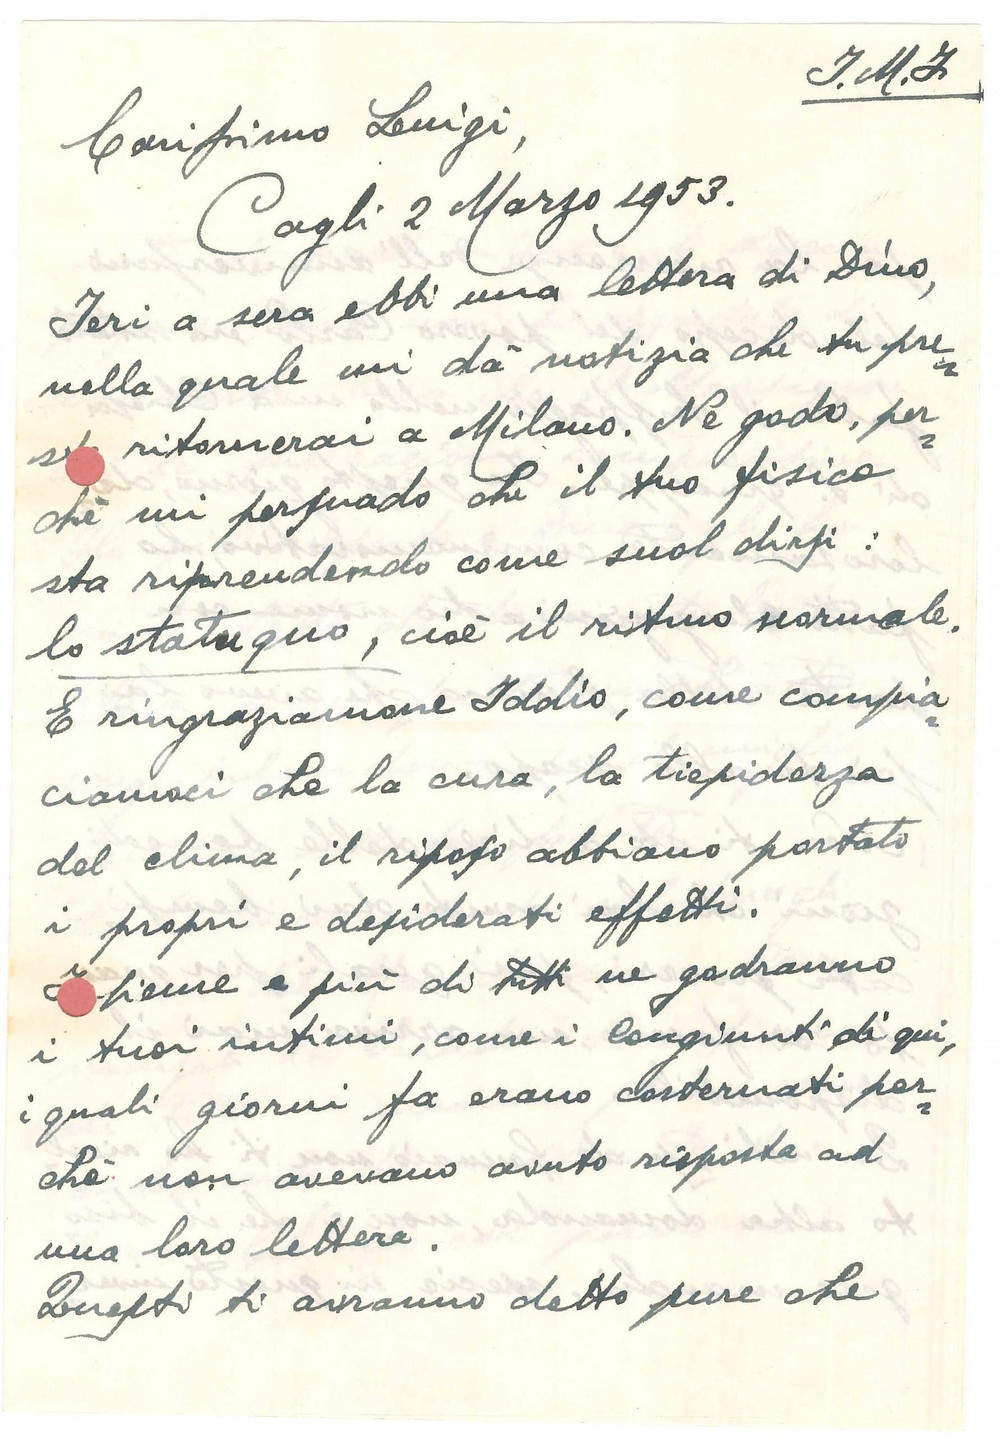 J.M.J
Carissimo Luigi,
Cagli 2 Marzo 1953.
Ieri a sera ebbi una lettera di Dino,
nella quale mi dà notizia che tu pre=
sto ritornerai a Milano. Ne godo, per=
chè mi persuado che il tuo fisico
sta riprendendo come suol dirsi :
lo statu quo, cioè il ritmo normale.
E ringraziamone Iddio, come compia=
ciamoci che la cura, la tiepidezza
del clima, il riposo abbiano portato
i propri e desiderati effetti.
Insieme e più di tutti ne godranno
i tuoi intimi, come i congiunti di qui,
i quali giorni fa erano costernati per=
chè non avevano avuto risposta ad
una loro lettera.
Questi ti avranno detto pure che